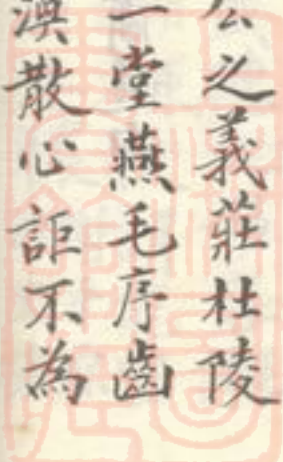 公之義莊杜陵
一堂燕毛序齒
渙散心詎不為